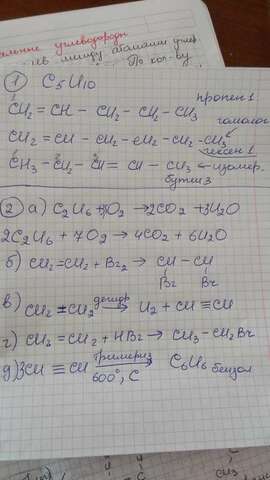 альные углеводороды
между атомами угле
По кол-ву
① C5H10
1
CH2 = CH - CH2 - CH2 - CH3 пропен 1
гомолог
CH2 = CH - CH2 - CH2 - CH2 - CH3
гексен 1
CH3 - CH2 - CH = CH - CH3 ← изомер.
бутин 3
② а) C2H6 + O2 → 2CO2 + 3H2O
2C2H6 + 7O2 → 4CO2 + 6H2O
б) CH2 = CH2 + Br2 → CH - CH
Br Br
в) CH2 = CH2 дегидр → H2 + CH ≡ CH
г) CH2 = CH2 + HBr → CH3 - CH2Br
д) 3CH ≡ CH тримериз → C6H6
600°, C бензол